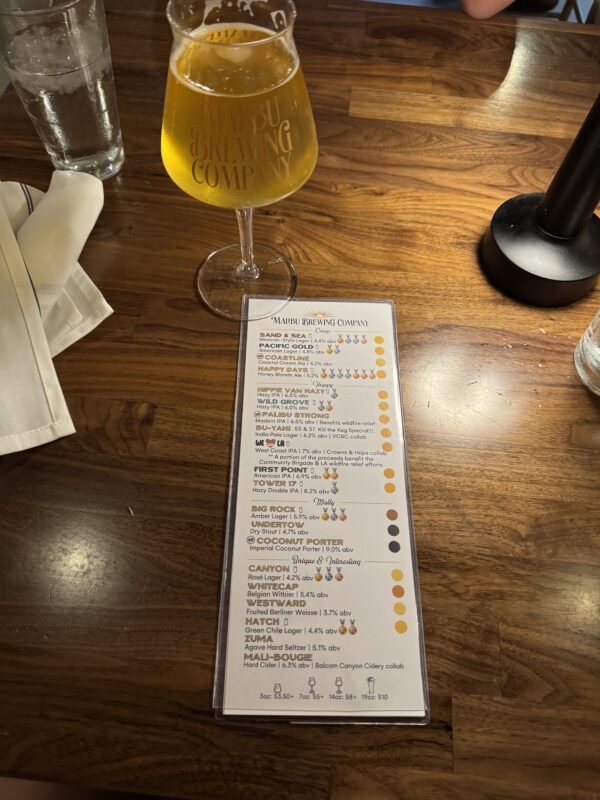 MALIBU
BREWING
COMPANY
MALIBU BREWING COMPANY
Crisp
SAND & SEA
Mexican-Style Lager | 4.4% abv
PACIFIC GOLD
American Lager | 4.8% abv
COASTLINE
Coastal Cream Ale | 4.2% abv
HAPPY DAYS
Honey Blonde Ale | 5.2%
Hoppy
HIPPIE VAN HAZY
Hazy IPA | 6.5% abv
WILD GROVE
Hazy IPA | 6.0% abv
PALIBU STRONG
Modern IPA | 6.5% abv | Benefits wildfire relief
BU-YAH! $5 & $7 Kill the Keg Special!!!
India Pale Lager | 6.2% abv | VCBC collab
WE LA
West Coast IPA | 7% abv | Crowns & Hops collab
** A portion of the proceeds benefit the
Community Brigade & LA wildfire relief efforts
FIRST POINT
American IPA | 6.9% abv
TOWER 17
Hazy Double IPA | 8.2% abv
Malty
BIG ROCK
Amber Lager | 5.9% abv
UNDERTOW
Dry Stout | 4.7% abv
COCONUT PORTER
Imperial Coconut Porter | 9.0% abv
Unique & Interesting
CANYON
Rosé Lager | 4.2% abv
WHITECAP
Belgian Witbier | 5.4% abv
WESTWARD
Fruited Berliner Weisse | 3.7% abv
HATCH
Green Chile Lager | 4.4% abv
ZUMA
Agave Hard Seltzer | 5.1% abv
MALI-BOUGIE
Hard Cider | 6.3% abv | Balcom Canyon Cidery collab
3oz: $3.50+ 7oz: $5+ 14oz: $8+ 19oz: $10